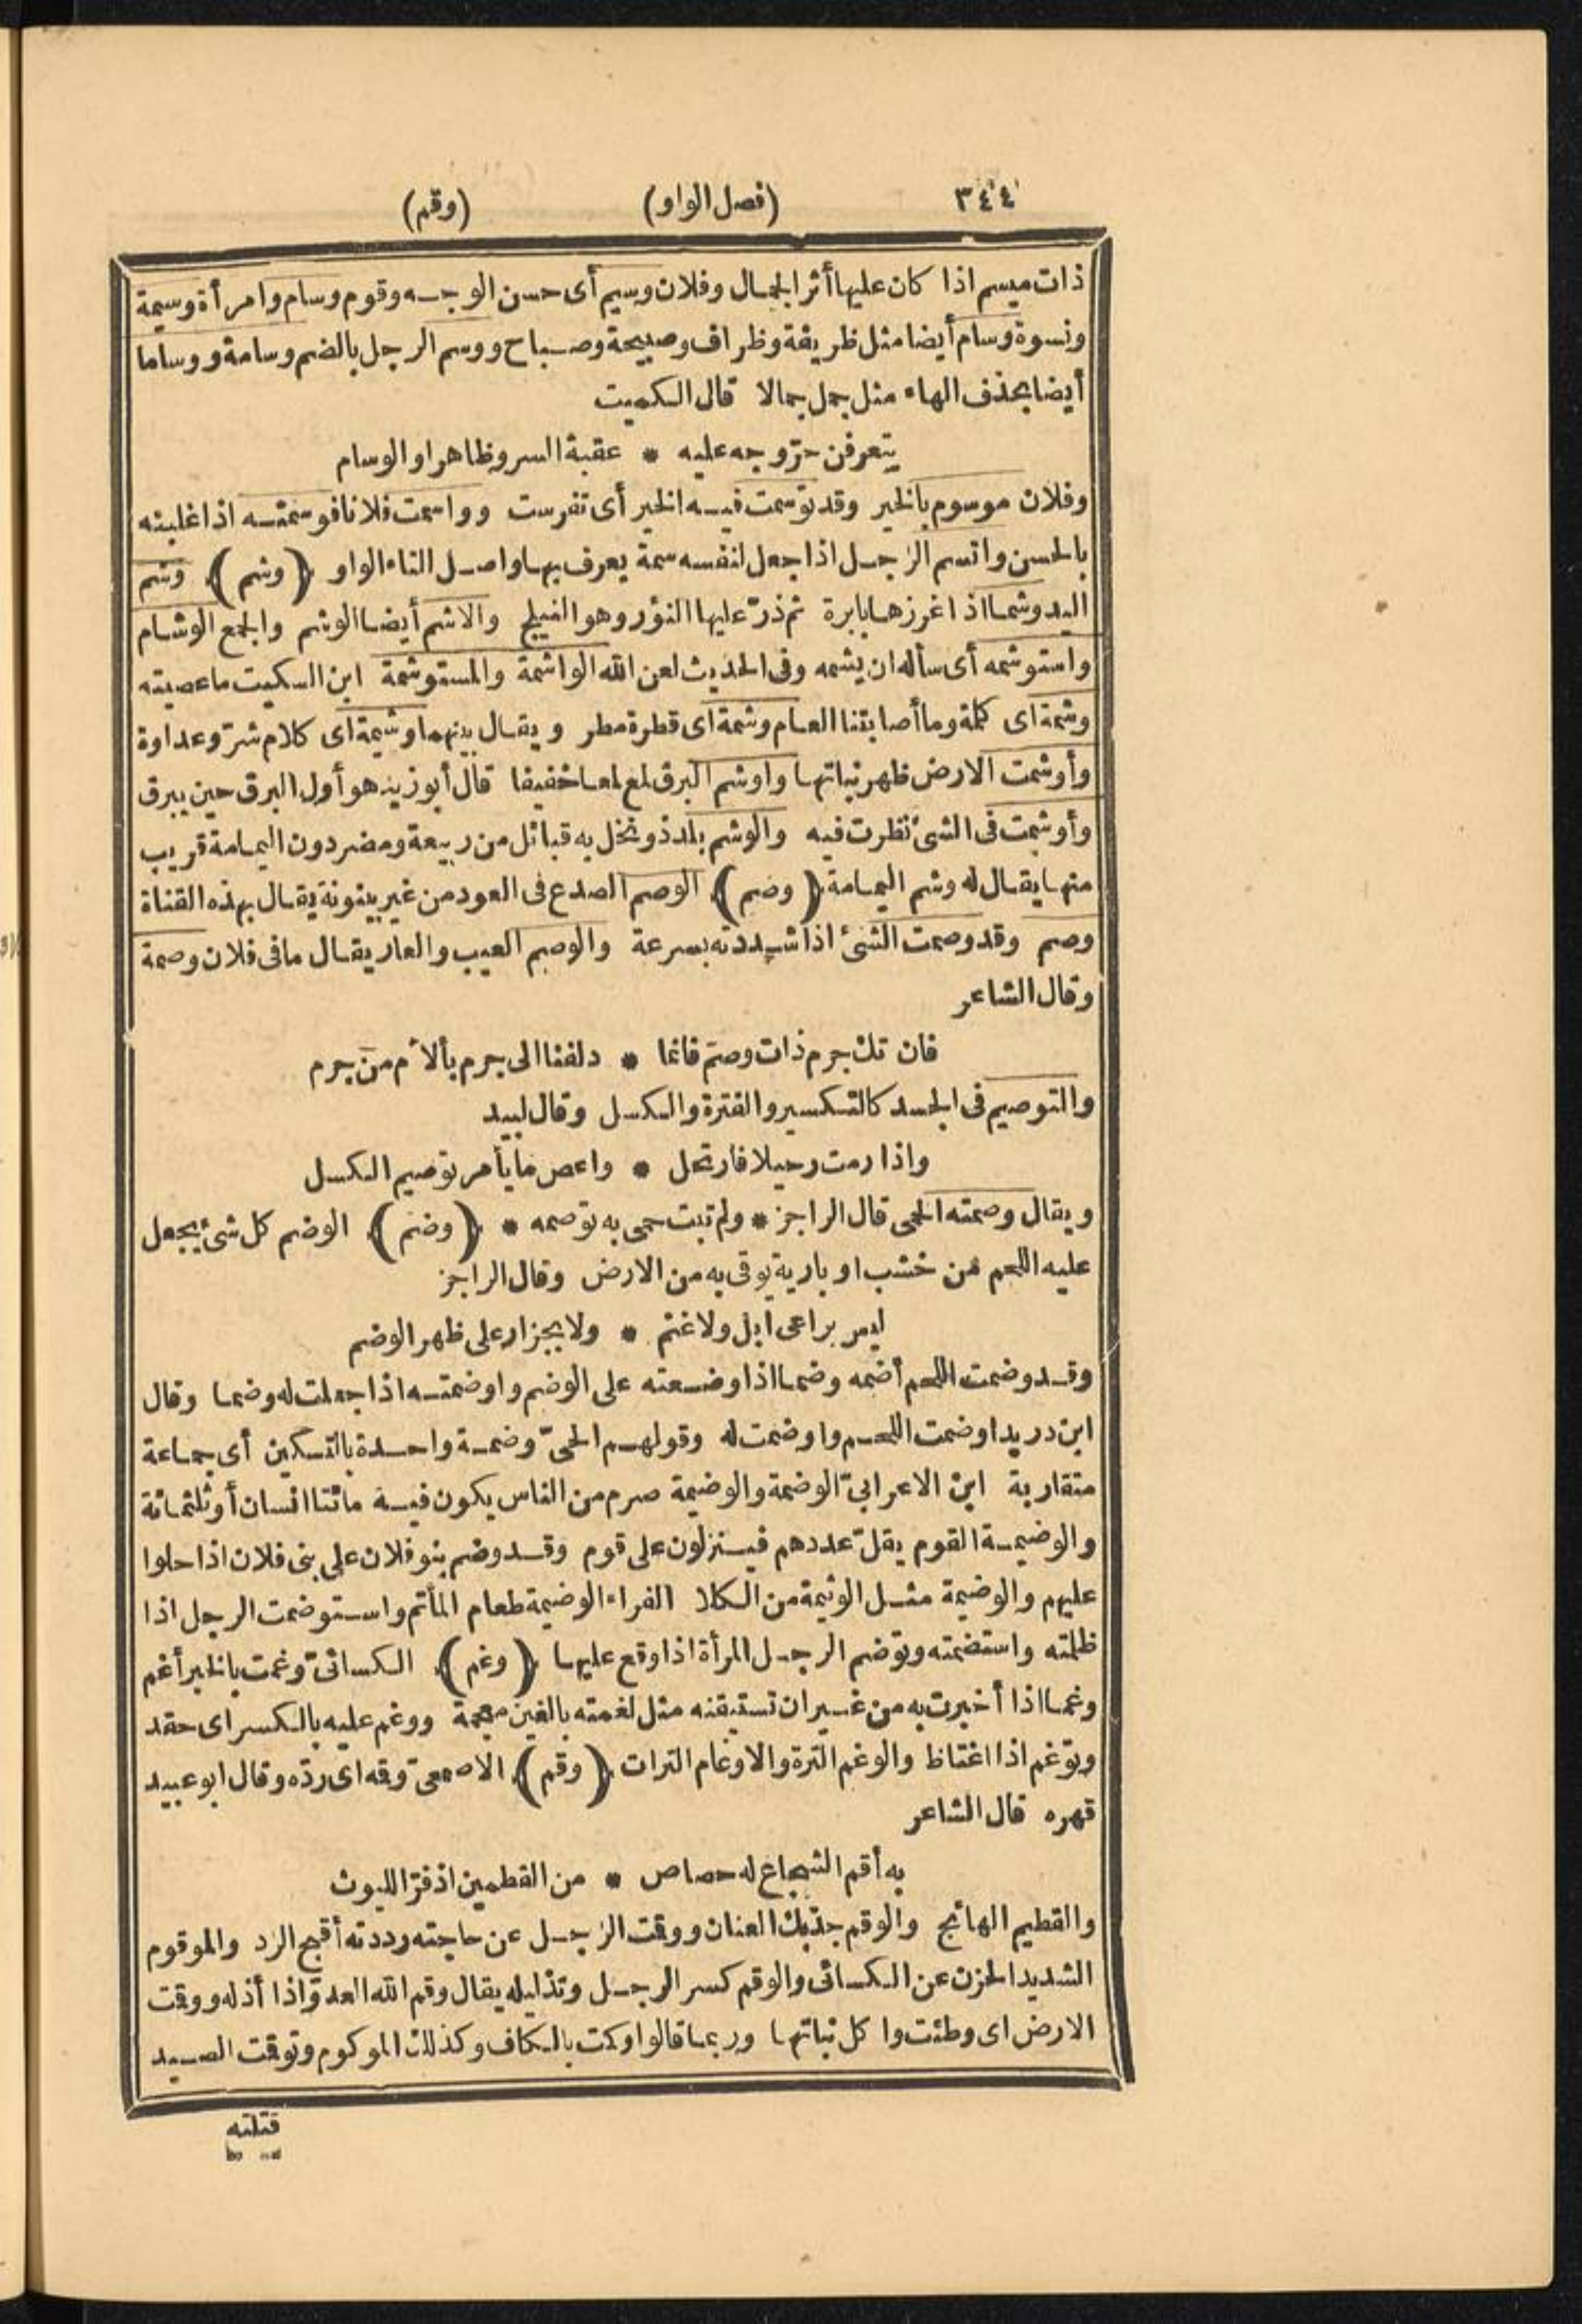 ٣٤٤ (فصل الواو) (وقم)
ذات ميسم اذا كان عليها أثر الجمال وفلان وسيم أى حسن الوجه وقوم وسام وامرأة وسيمة
ونسوة وسام أيضا مثل ظريفة وظراف وصبيحة وصباح ووسم الرجل بالضم وسامة ووساما
أيضا بحذف الهاء مثل جمل جمالا قال الكميت
يتعرفن حرّ وجه عليه * عقبة السرو ظاهرا والوسام
وفلان موسوم بالخير وقد توسمت فيه الخير أى تفرست وواسمت فلانا فوسمته اذا غلبته
بالحسن واتسم الرجل اذا جعل لنفسه سمة يعرف بها واصل التاء الواو (وشم) وشم
اليد وشما اذا غرزها بابرة ثم ذرّ عليها النؤر وهو النيلج والاشم أيضا الوشم والجمع الوشام
واستوشمه أى سأله ان يشمه وفى الحديث لعن الله الواشمة والمستوشمة ابن السكيت ما عصيته
وشمة اى كلمة وما أصابتنا العام وشمة اى قطرة مطر ويقال بينهما وشيمة اى كلام شرّ وعداوة
وأوشمت الارض ظهر نباتها واوشم البرق لمع لمعا خفيفا قال أبو زيد هو أول البرق حين يبرق
وأوشمت فى الشئ نظرت فيه والوشم بلد ذو نخل به قبائل من ربيعة ومضر دون اليمامة قريب
منها يقال له وشم اليمامة (وصم) الوصم الصدع فى العود من غير بينونة يقال بهذه القناة
وصم وقد وصمت الشئ اذا شددته بسرعة والوصم العيب والعار يقال ما فى فلان وصمة
وقال الشاعر
فان تك جرم ذات وصم فانما * دلفنا الى جرم بألأم من جرم
والتوصيم فى الجسد كالتكسير والفترة والكسل وقال لبيد
واذا رمت رحيلا فارتحل * واعص ما يأمر توصيم الكسل
ويقال وصمته الحمى قال الراجز * ولم تبت حمى به توصمه * (وضم) الوضم كل شئ يجعل
عليه اللحم من خشب او بارية يوقى به من الارض وقال الراجز
ليس براعى ابل ولا غنم * ولا بجزار على ظهر الوضم
وقد وضمت اللحم أضمه وضما اذا وضعته على الوضم واوضمته اذا جعلت له وضما وقال
ابن دريد اوضمت اللحم واوضمت له وقولهم الحىّ وضمة واحدة بالتسكين أى جماعة
متقاربة ابن الاعرابىّ الوضمة والوضيمة صرم من الناس يكون فيه مائتا انسان أو ثلثمائة
والوضيمة القوم يقلّ عددهم فينزلون على قوم وقد وضم بنو فلان على بنى فلان اذا حلوا
عليهم والوضيمة مثل الوثيمة من الكلا الفراء الوضيمة طعام المأتم واستوضمت الرجل اذا
ظلمته واستضمته وتوضم الرجل المرأة اذا وقع عليها (وغم) الكسائىّ وغمت بالخبر أغم
وغما اذا أخبرت به من غير ان تستيقنه مثل لغمته بالغين معجمة ووغم عليه بالكسر اى حقد
وتوغم اذا اغتاظ والوغم الترة والاوغام الترات (وقم) الاصمعىّ وقمه اى ردّه وقال ابو عبيد
قهره قال الشاعر
به أقم الشجاع له حصاص * من القطمين اذ فرّ الليوث
والقطيم الهائج والوقم جذبك العنان ووقمت الرجل عن حاجته رددته أقبح الرد والموقوم
الشديد الحزن عن الكسائى والوقم كسر الرجل وتذليله يقال وقم الله العدوّ اذا أذله ووقمت
الارض اى وطئت واكل نباتها وربما قالوا وكمت بالكاف وكذلك الموكوم وتوقمت الصيد
قتلته